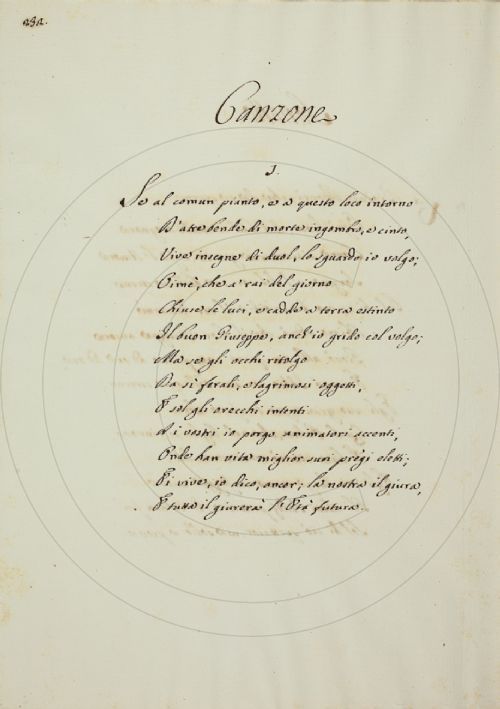 232.
Canzone
I.
Se al comun pianto, e a questo loco intorno
D'atre bende di morte ingombro, e cinto,
Vive insegne di duol, lo sguardo io volgo;
Oimè, che a rai del giorno
Chiuse le luci, e cadde a terra estinto
Il buon Giuseppe, anch'io grido col volgo;
Ma se gli occhi ritolgo
Da si ferali, e lagrimosi oggetti,
E sol gli orecchi intenti
A i vostri io porgo animatori accenti,
Onde han vita miglior suoi pregi eletti;
Ei vive, io dico, ancor; la nostra il giura,
E tutta il giurerà l'Età futura.